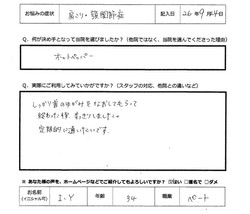 お悩みの症状 肩こり・顎関節症 記入日 26年9月4日
Q. 何が決め手となって当院を選びましたか?(他院ではなく、当院を選んでくださった理由)
ホットペッパー
Q. 実際にご利用してみていかがですか?(スタッフの対応、他院との違いなど)
しっかり首のゆがみをなおしてもらって
終わった後 すっきりしました。
定期的に通いたいです。
※ あなた様の声を、ホームページなどでご紹介してもよろしいですか? はい □匿名で □ダメ
お名前 I.Y 年齢 34 職業 パート
(イニシャル可)